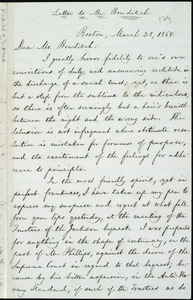 Letter to Mr. Bowditch.
Boston, March 28, 1868.
Dear Mr. Bowditch:
I greatly honor fidelity to one's own
convictions of duty, and unswerving rectitude in
the discharge of a sacred trust; yet, as there is
but a step from the sublime to the ridiculous,
so there is sometimes but a hair's breadth
between the right and the wrong side. The
delusion is not infrequent where obstinate reso-
lution is mistaken for firmness of purpose,
and the excitement of the feelings for adhe-
rence to principle.
In the most friendly spirit, yet in
perfect frankness, I have taken up my pen to
express my surprise and regret at what fell
from your lips yesterday, at the meeting of the
Trustees of the Jackson bequest. I was prepared
for anything in the shape of contumacy, on the
part of Mr. Phillips, against the decree of the
Supreme Court in regard to that bequest, be-
cause by his written assertion, in the Anti-Sla-
very Standard, of such of the Trustees as do